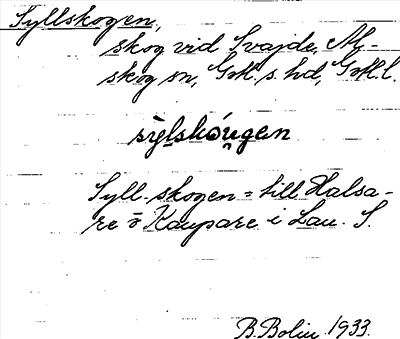 Syllskogen,
skog vid Svajde, Al-
skog sn, Gotl. s. hd, Gotl. l.
sỳlskóu̯gen
Syll-skogen = till Halsa-
re o Kaupare i Lau. S.
B. Bolin 1933.